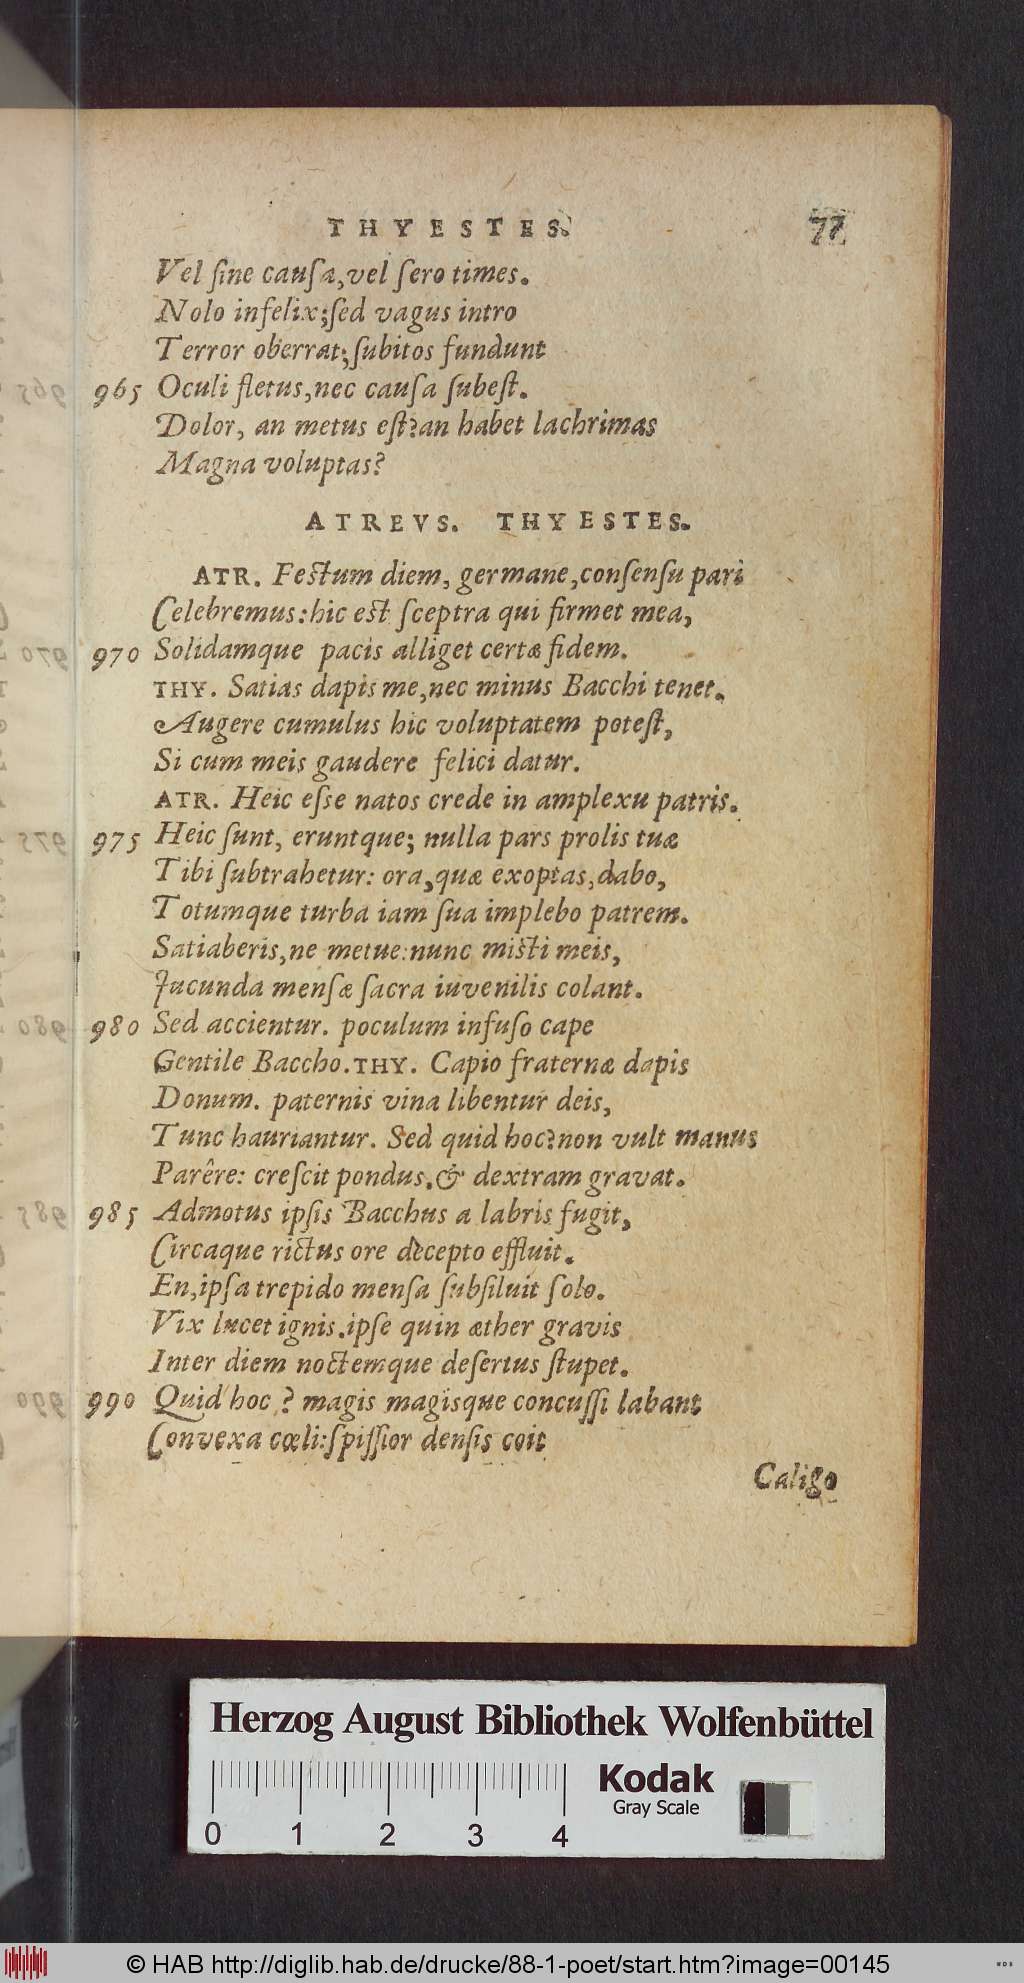 THYESTES. 77
Vel ſine cauſa, vel ſero times.
Nolo infelix; ſed vagus intro
Terror oberrat; ſubitos fundunt
965 Oculi fletus, nec cauſa ſubeſt.
Dolor, an metus eſt? an habet lachrimas
Magna voluptas?
ATREVS. THYESTES.
ATR. Feſtum diem, germane, conſenſu pari
Celebremus: hic eſt ſceptra qui firmet mea,
970 Solidamque pacis alliget certæ fidem.
THY. Satias dapis me, nec minus Bacchi tenet.
Augere cumulus hic voluptatem poteſt,
Si cum meis gaudere felici datur.
ATR. Heic eſſe natos crede in amplexu patris.
975 Heic ſunt, eruntque; nulla pars prolis tuæ
Tibi ſubtrahetur: ora, quæ exoptas, dabo,
Totumque turba iam ſua implebo patrem.
Satiaberis, ne metue: nunc miſti meis,
Jucunda menſæ ſacra iuvenilis colant.
980 Sed accientur. poculum infuſo cape
Gentile Baccho. THY. Capio fraternæ dapis
Donum. paternis vina libentur deis,
Tunc hauriantur. Sed quid hoc? non vult manus
Parêre: creſcit pondus, & dextram gravat.
985 Admotus ipſis Bacchus a labris fugit,
Circaque rictus ore decepto effluit.
En, ipſa trepido menſa ſubſiluit ſolo.
Vix lucet ignis. ipſe quin æther gravis
Inter diem noctemque deſertus ſtupet.
990 Quid hoc? magis magisque concuſſi labant
Convexa cœli: ſpiſſior denſis coit
Caligo
Herzog August Bibliothek Wolfenbüttel
Kodak
Gray Scale
0 1 2 3 4
© HAB http://diglib.hab.de/drucke/88-1-poet/start.htm?image=00145